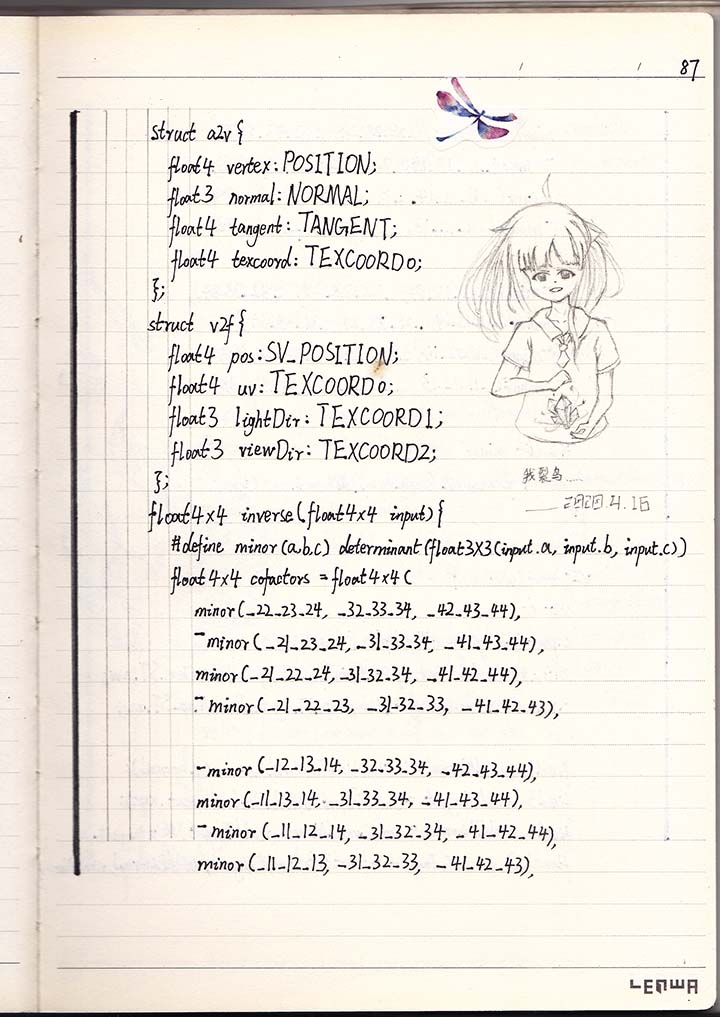 87
struct a2v{
float4 vertex: POSITION;
float3 normal: NORMAL;
float4 tangent: TANGENT;
float4 texcoord: TEXCOORD0;
};
struct v2f{
float4 pos: SV_POSITION;
float4 uv: TEXCOORD0;
float3 lightDir: TEXCOORD1;
float3 viewDir: TEXCOORD2;
};
我裂鸟......
—— 2020.4.16
float4x4 inverse(float4x4 input){
#define minor(a,b,c) determinant(float3X3(input.a, input.b, input.c))
float4x4 cofactors = float4x4(
minor(_22_23_24, _32_33_34, _42_43_44),
-minor(_21_23_24, _31_33_34, _41_43_44),
minor(_21_22_24, _31_32_34, _41_42_44),
-minor(_21_22_23, _31_32_33, _41_42_43),
-minor(_12_13_14, _32_33_34, _42_43_44),
minor(_11_13_14, _31_33_34, _41_43_44),
-minor(_11_12_14, _31_32_34, _41_42_44),
minor(_11_12_13, _31_32_33, _41_42_43),